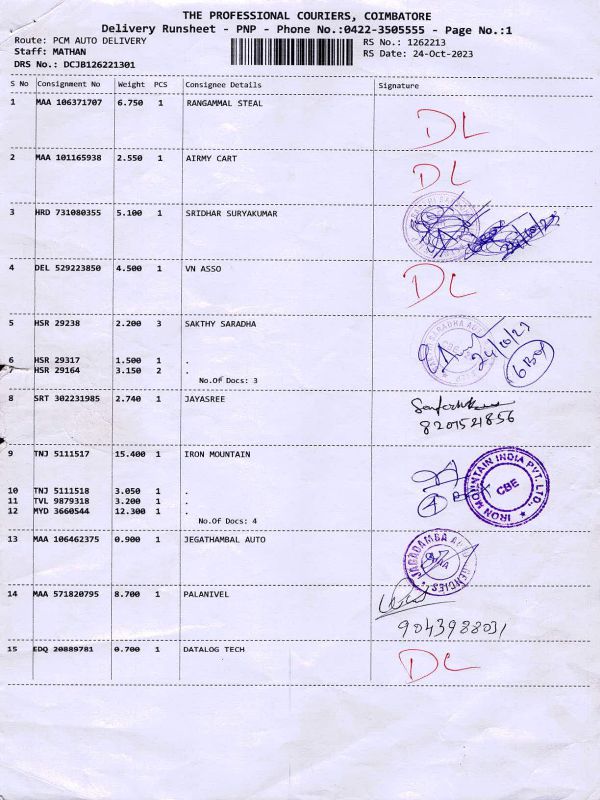 THE PROFESSIONAL COURIERS, COIMBATORE
Delivery Runsheet - PNP - Phone No.:0422-3505555 - Page No.:1
Route: PCM AUTO DELIVERY
RS No.: 1262213
Staff: MATHAN
RS Date: 24-Oct-2023
DRS No.: DCJB126221301
S No Consignment No Weight PCS Consignee Details Signature
1 MAA 106371707 6.750 1 RANGAMMAL STEAL
DL
2 MAA 101165938 2.550 1 AIRMY CART
DL
3 HRD 731080355 5.100 1 SRIDHAR SURYAKUMAR
4 DEL 529223850 4.500 1 VN ASSO
DL
5 HSR 29238 2.200 3 SAKTHY SARADHA
24/10/23
6 Box
6 HSR 29317 1.500 1 .
7 HSR 29164 3.150 2 .
No.Of Docs: 3
8 SRT 302231985 2.740 1 JAYASREE
9 TNJ 5111517 15.400 1 IRON MOUNTAIN
IRON MOUNTAIN INDIA PVT. LTD.,
CBE
10 TNJ 5111518 3.050 1 .
11 TVL 9879318 3.200 1 .
12 MYD 3660544 12.300 1 .
No.Of Docs: 4
13 MAA 106462375 0.900 1 JEGATHAMBAL AUTO
14 MAA 571820795 8.700 1 PALANIVEL
9043988031
15 EDQ 20889781 0.700 1 DATALOG TECH
DL